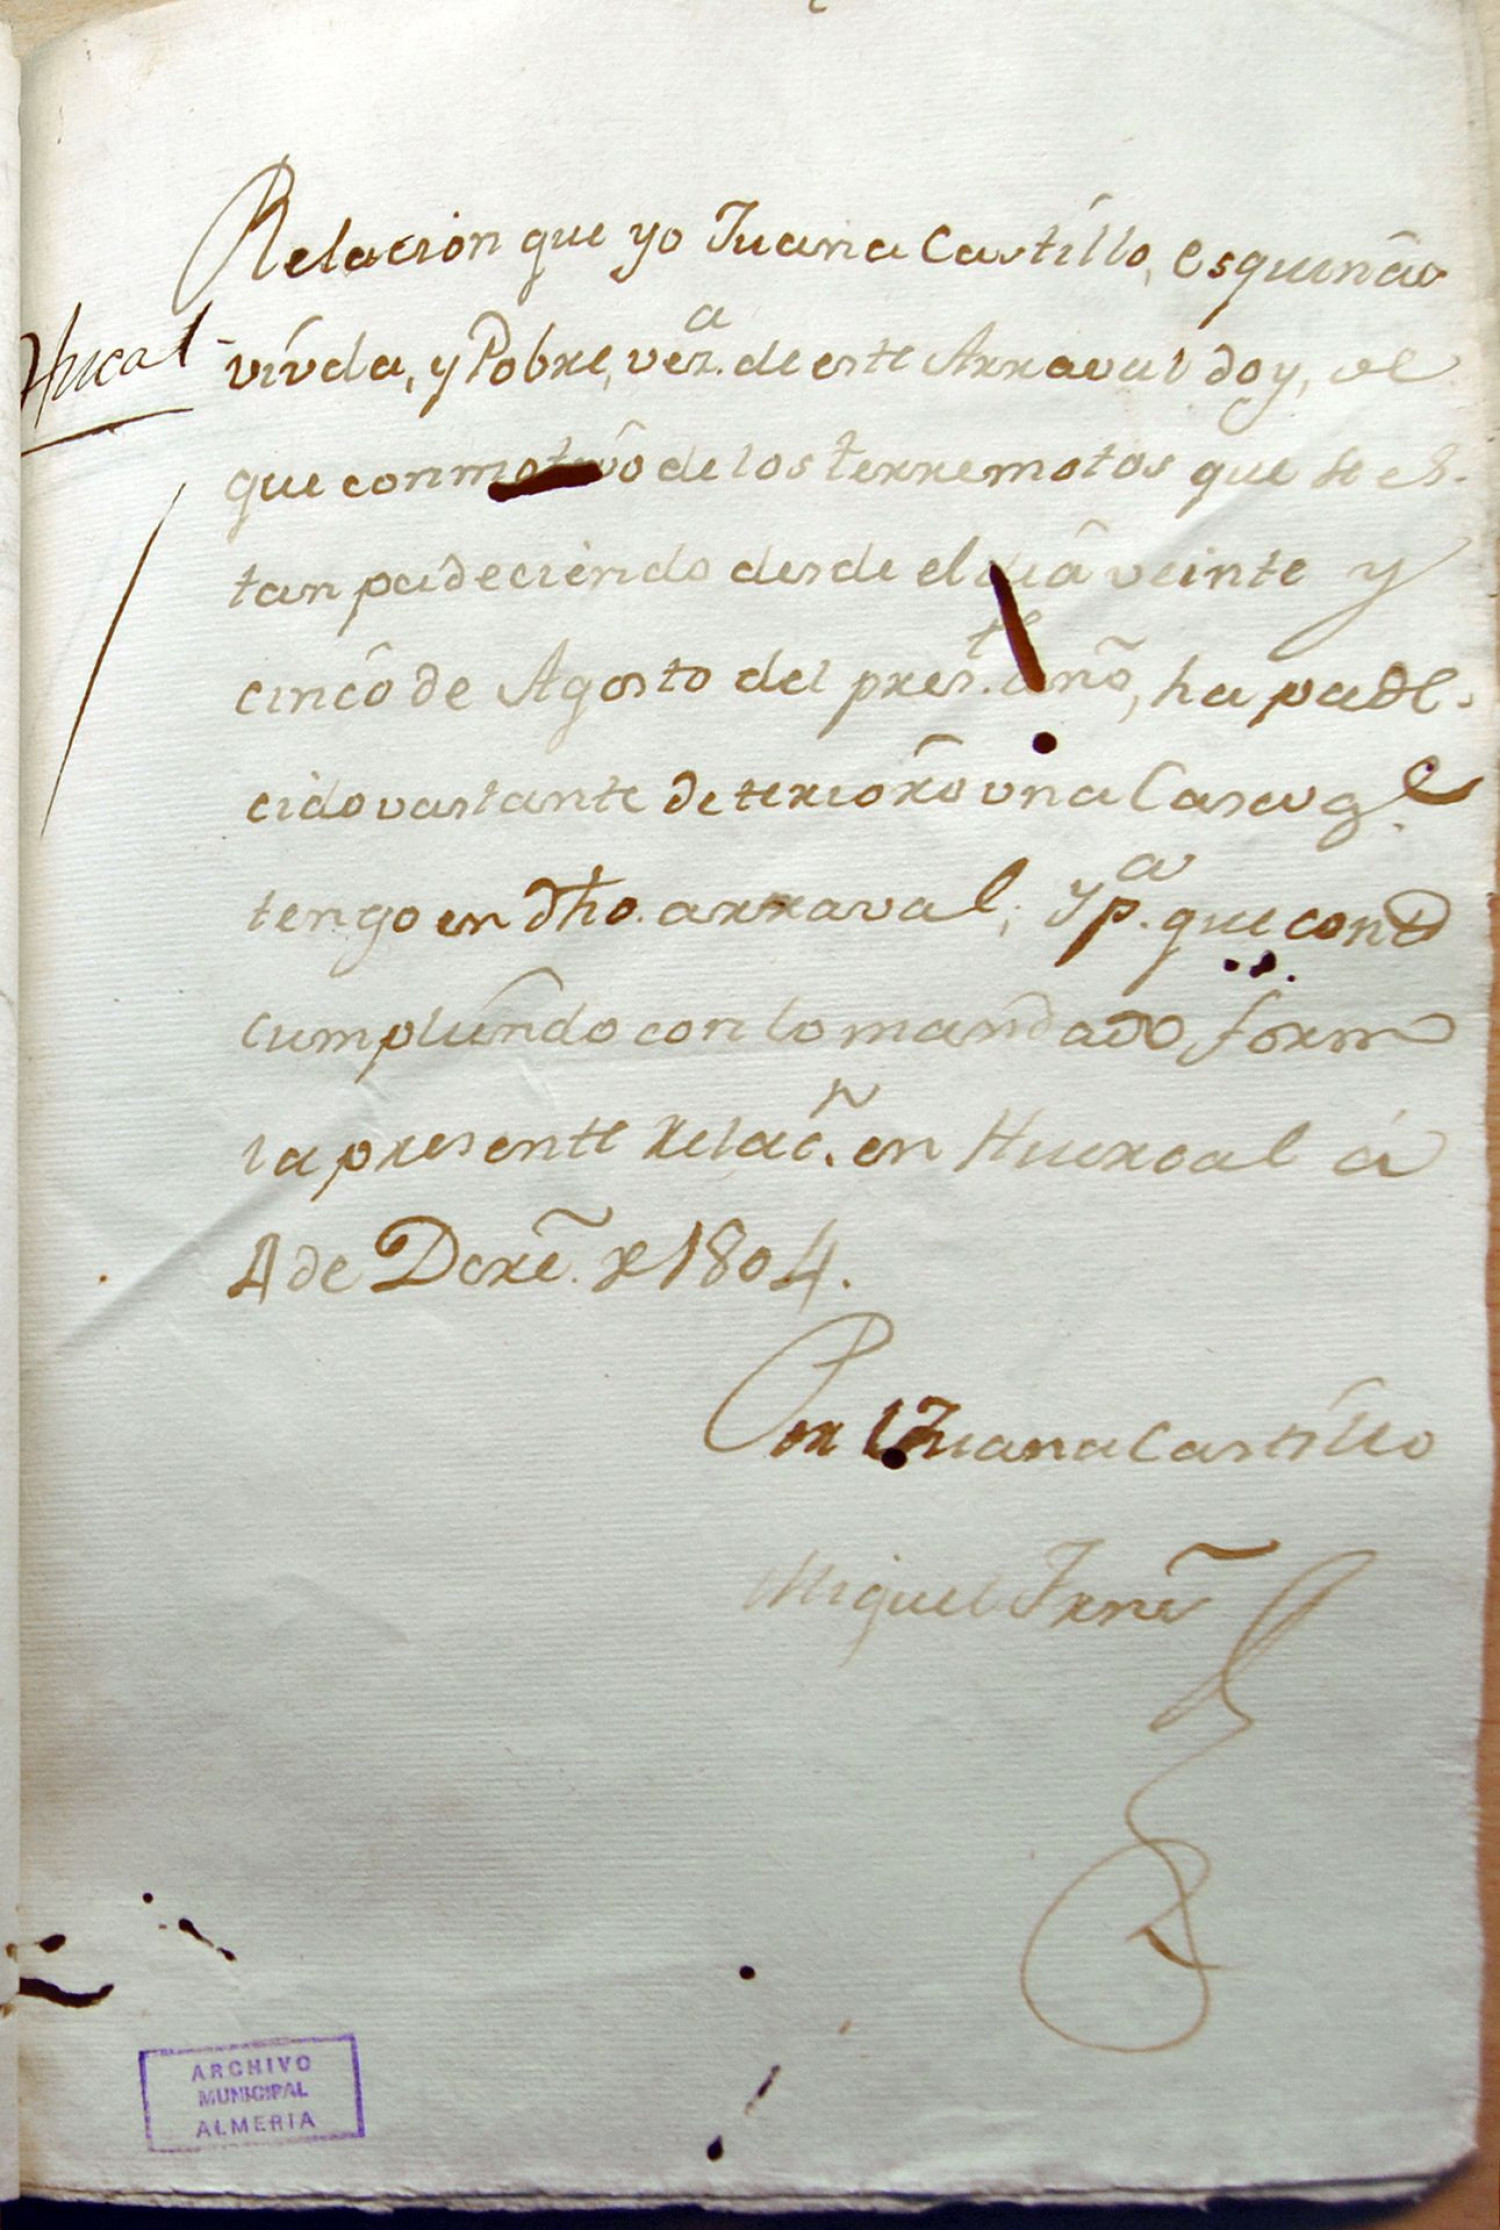 Relacion que yo Juana Castillo, esquinâ
Hucal
viuda, y Pobre, vez.ª de este Arraval doy, de
que con motivo de los terremotos que se es-
tan padeciendo desde el dia veinte y
cinco de Agosto del pres.te año, ha pade-
cido vastante deterioro una Casa q.e
tengo en dho. arraval; y p.ª que conste
cumpliendo con lo mandado, formo
la presente relac.n en Huercal á
4 de Dcre. de 1804.
Por Juana Castillo
Miguel Frnz
ARCHIVO
MUNICIPAL
ALMERIA